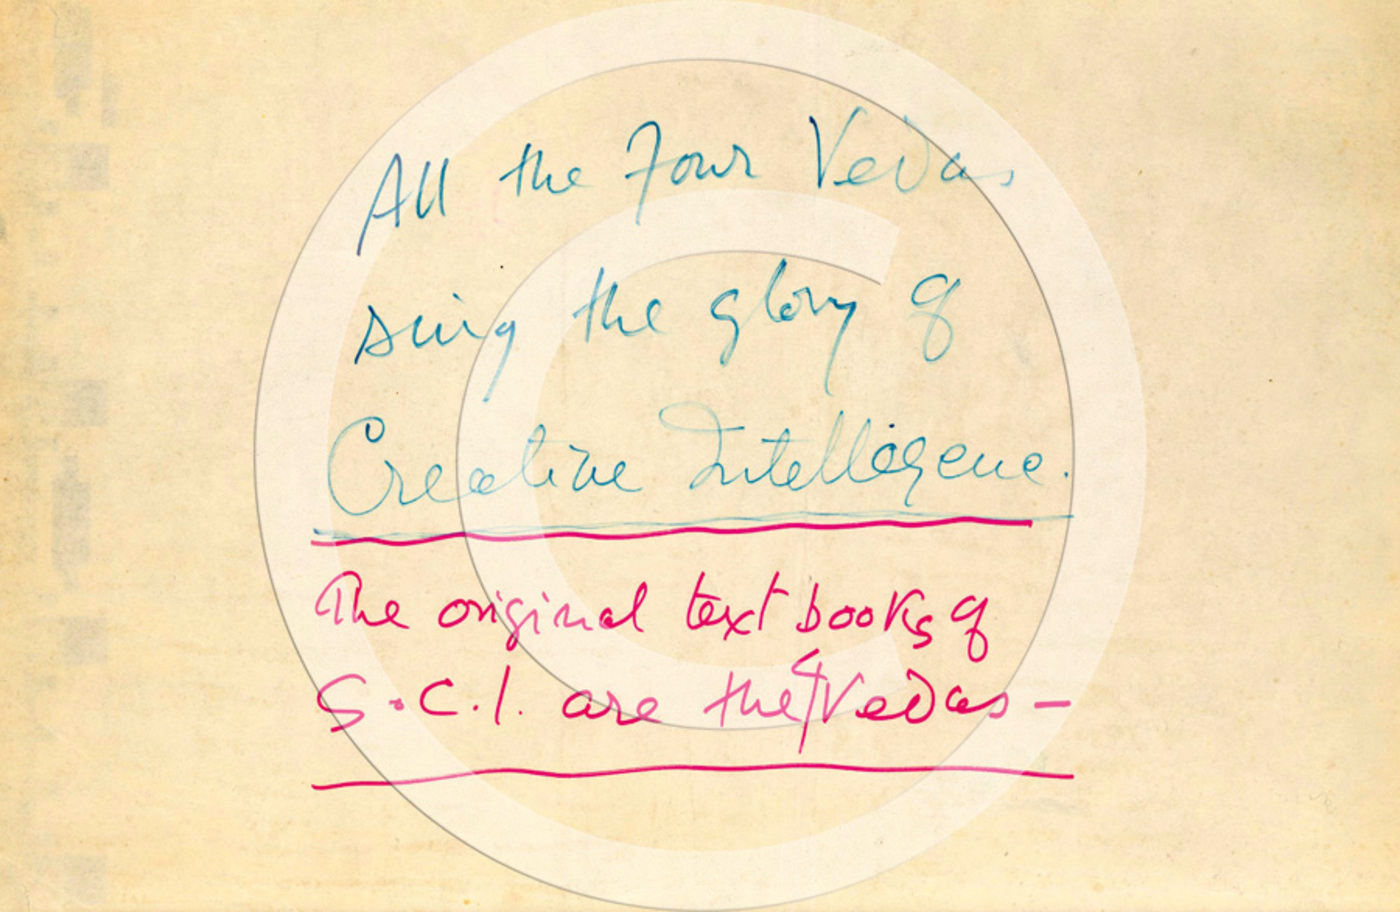 All the Four Vedas
sing the glory of
Creative Intelligence.
The original text books of
S.C.I. are the 4 Vedas –